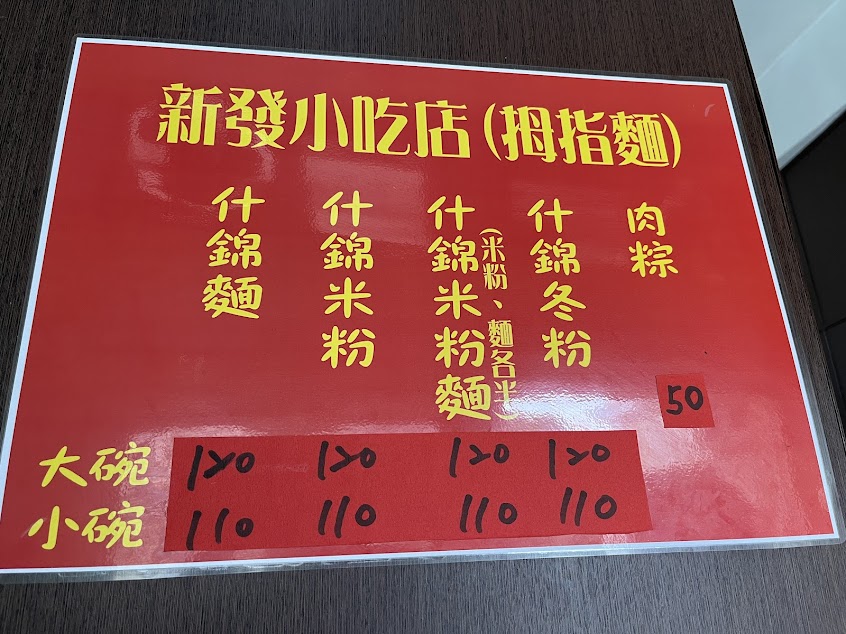 新發小吃店(拇指麵)
什錦麵
什錦米粉
什錦米粉麵
(米粉、麵各半)
什錦冬粉
肉粽
50
大碗 120 120 120 120
小碗 110 110 110 110